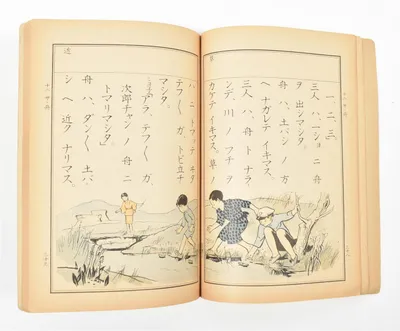 一、二、三。
三人ハ、一ショニ舟
ヲ出シマシタ。
舟ハ、土バシノ方
ヘナガレテイキマス。
三人ハ、舟トナラ
ンデ、川ノフチヲ
カケテイキマス。草ノ
近
ハニトマッテヰタ
テフ〱ガ、トビ立チ
マシタ。
「アラ、テフ〱ガ、
次郎チャンノ舟ニ
トマリマシタ。」
舟ハ、ダン〱土バ
シヘ近クナリマス。